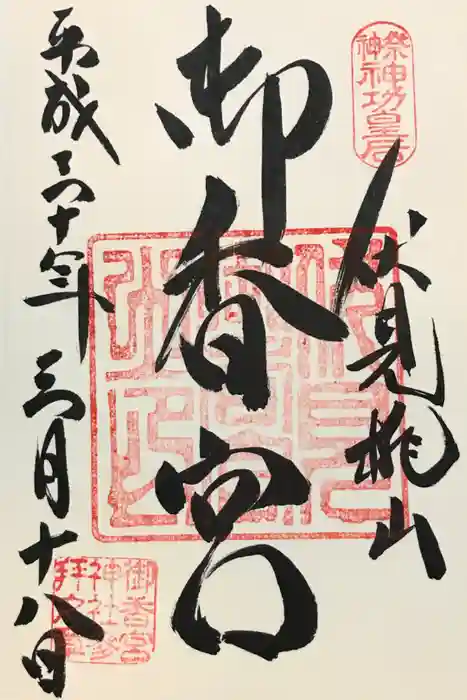 祭神
神功皇后
伏見桃山
御香宮
平成三十年三月十八日
御香宮
神社参
拝之